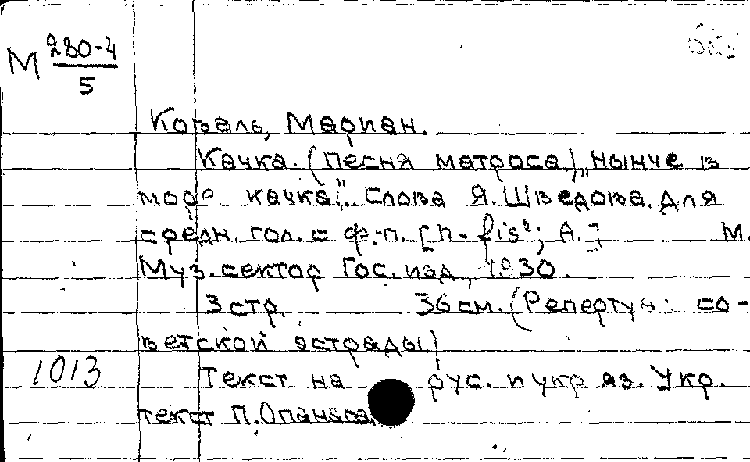 М 280-4
5
Коваль, Мариан.
Качка. (Песня матроса) „Нынче в
море качка". Слова Я. Шведова. Для
средн. гол. с ф.-п. [h - fis²; А.] М.
Муз. сектор Гос. изд., 1930.
3 стр. 36 см. (Репертуар со-
ветской эстрады)
1013 Текст на рус. и укр яз. Укр.
текст П. Опанаса